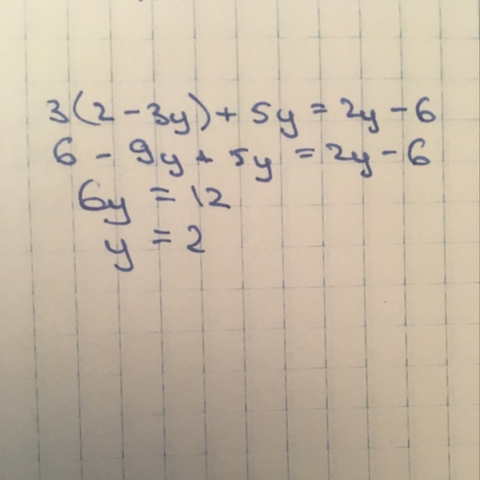 3(2-3y)+ 5y = 2y-6
6 - 9y + 5y = 2y-6
6y = 12
y = 2